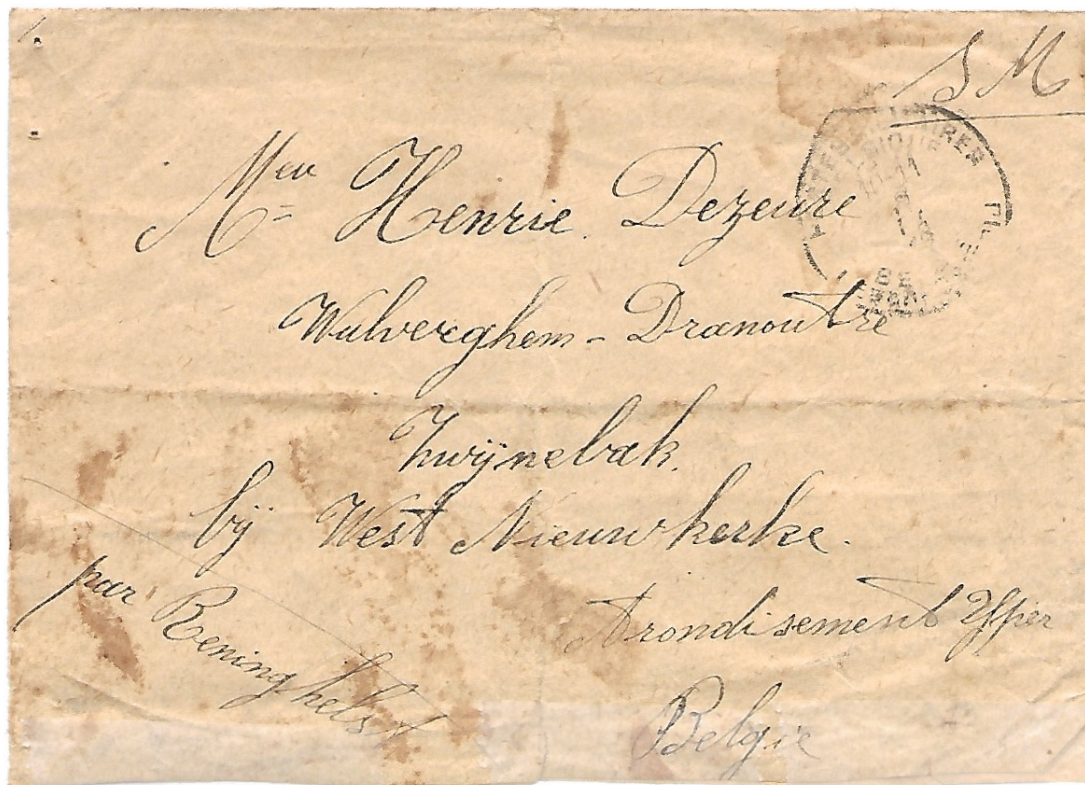 S M
Mew Henrie. Dezeure
Wulverghem - Dranoutre
Zwijnebak.
bij West Nieuwkerke.
par Reninghelst
Arondisement Yper
België